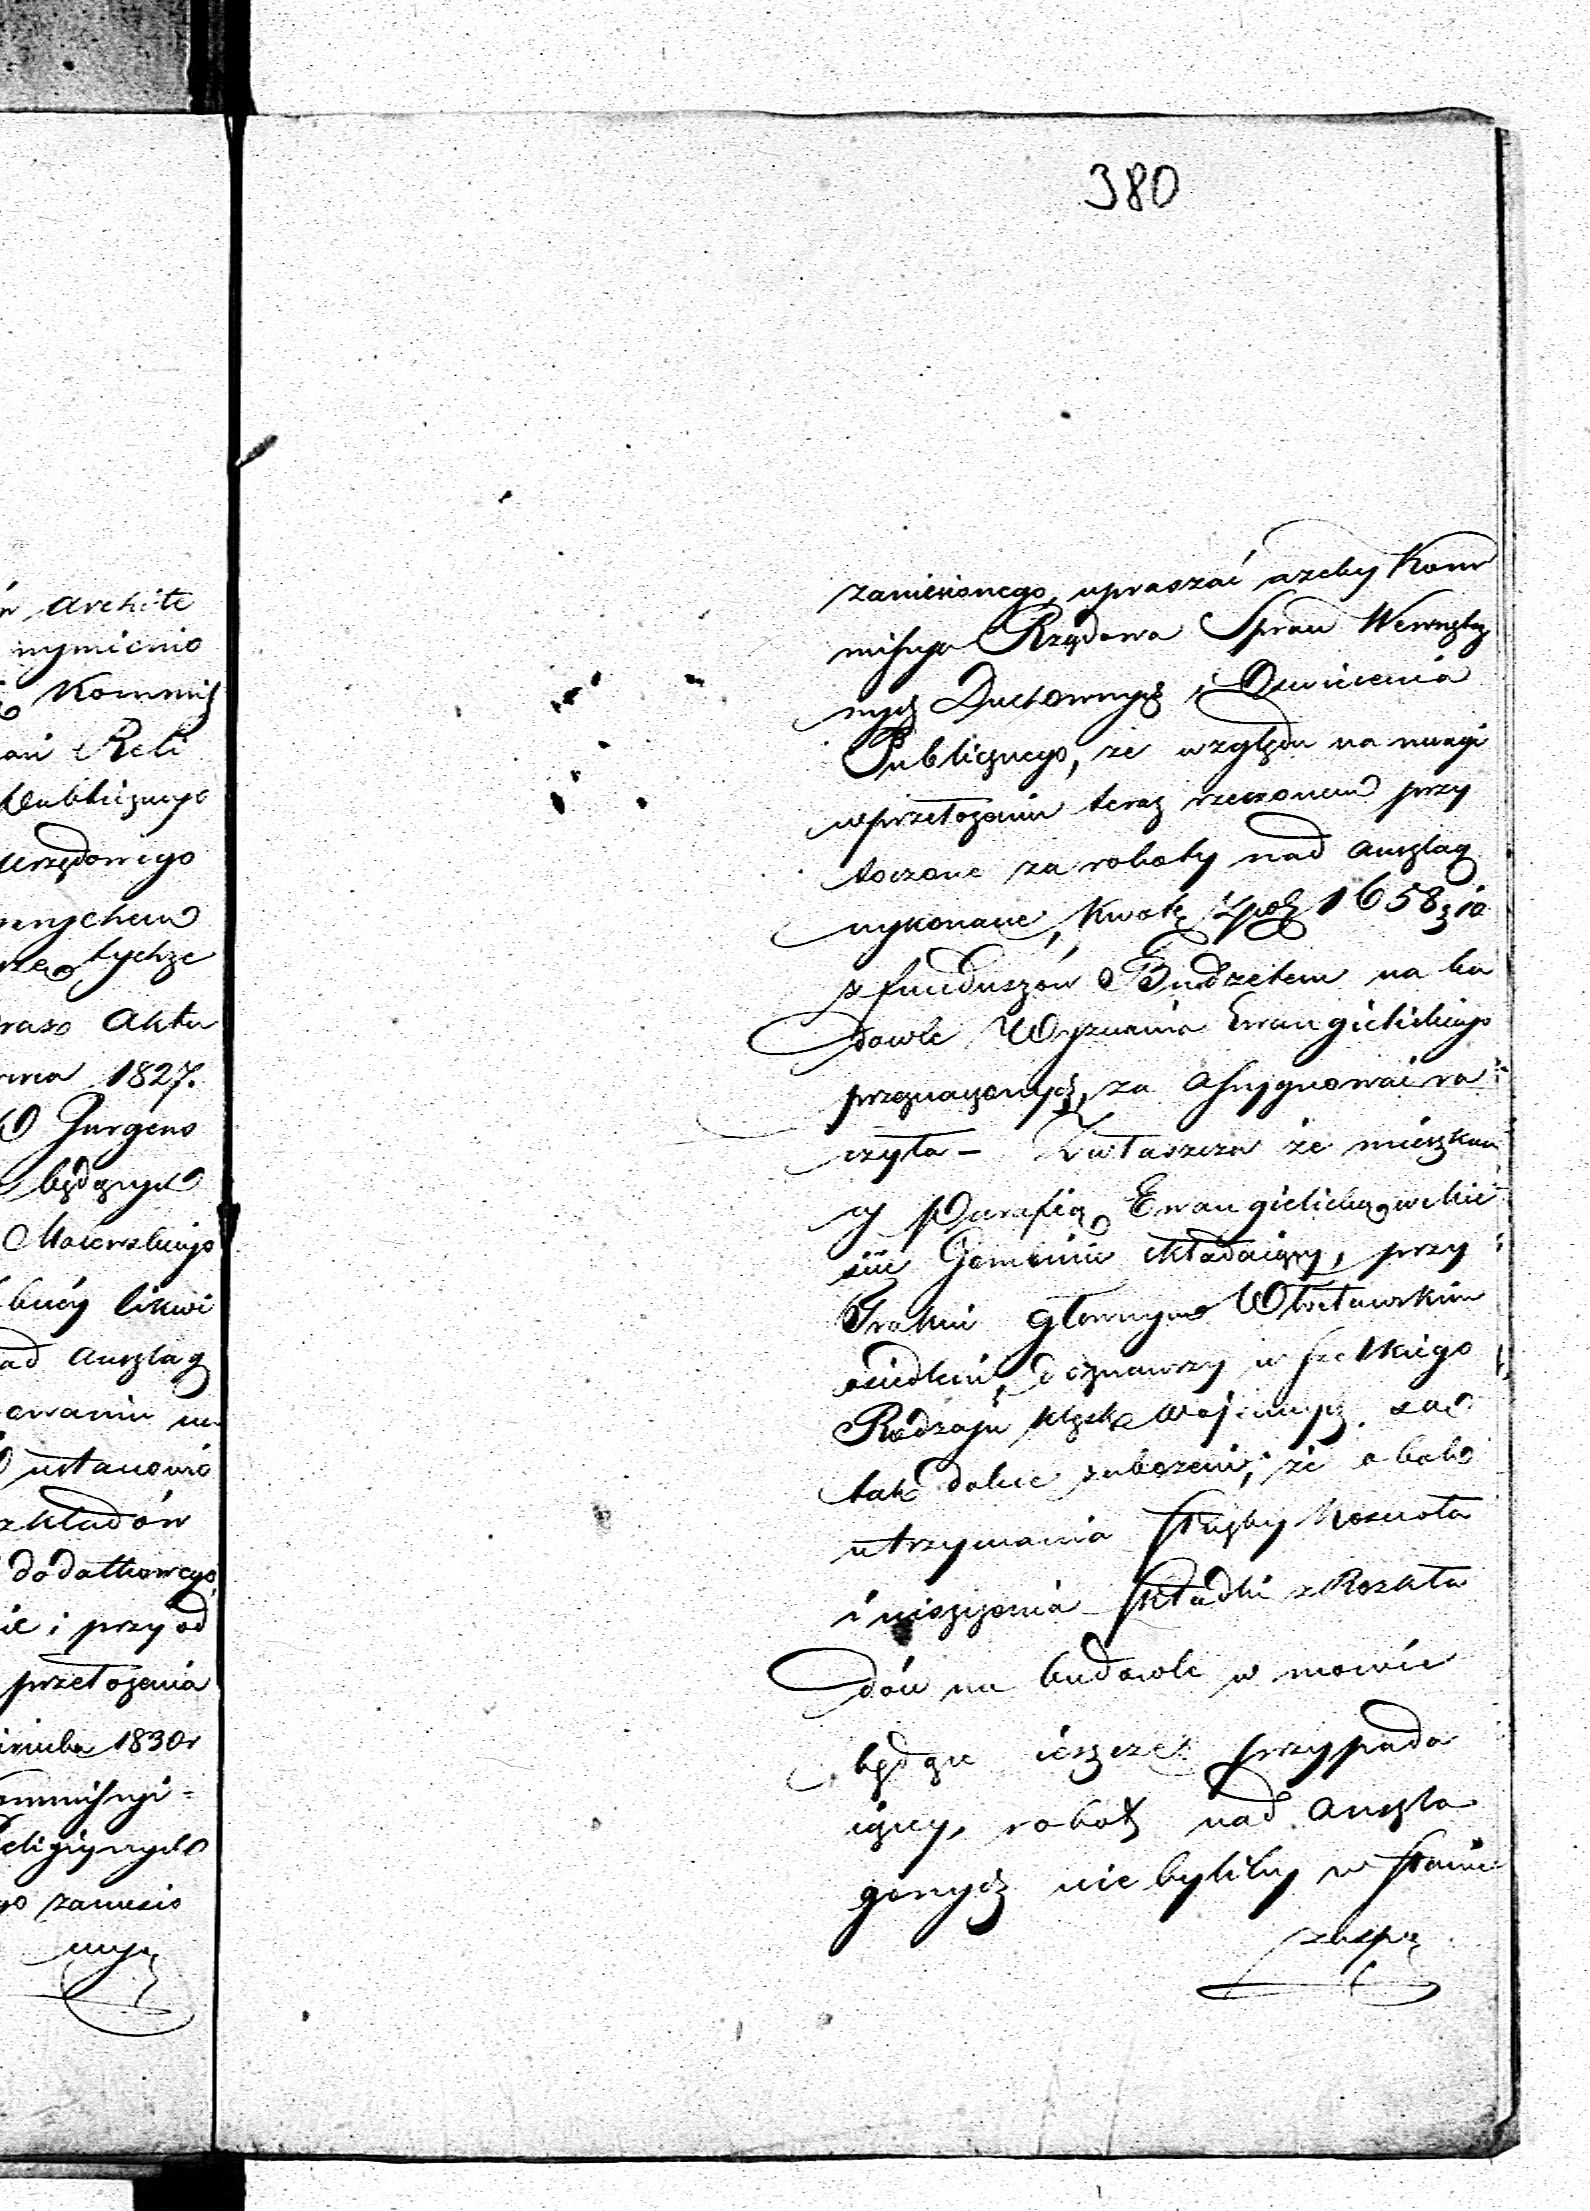 380
archite
wymienio
Kommis
Reli
Publicznego
Urzędowego
tychże
Aktu
1827.
Jurgens
będącym
Maierskiego
likwi
anszlag
ustanowio
zkładów
dodatkowego
i przy od
przełożenia
1830r
ommissyi =
eligiynych
zaniesio
nym
zaniesionego, upraszać azeby Kom
missya Rządowa Spraw Wewnętrz
nych Duchownych i Oswiecenia
Publicznego, ze względu na uwagi
w przełożeniu teraz rzeczonem przy
toczone za roboty nad anszlag
wykonane, kwotę Złpol 1658 10
z funduszów Budżetem na bu
dowle Wyznania Ewangielickiego
przeznaczonych, za assygnować ra
czyła – Zwłaszcza że mieszkań
cy Parafią Ewangielicką we Wie
sie składaiący, przy
Trakcie głównym
osiedleni, doznawszy wszelkiego
Rodzaju klęsk woiennych są
tak dalece zubożeni, że obok
utrzymania sługby Koscioła
i uiszczenia składki z Rozkła
dów na budowle w mowie
będące ieszcze przypada
iącey, robot nad anszla
gowych nie byliby w stanie
zaspo